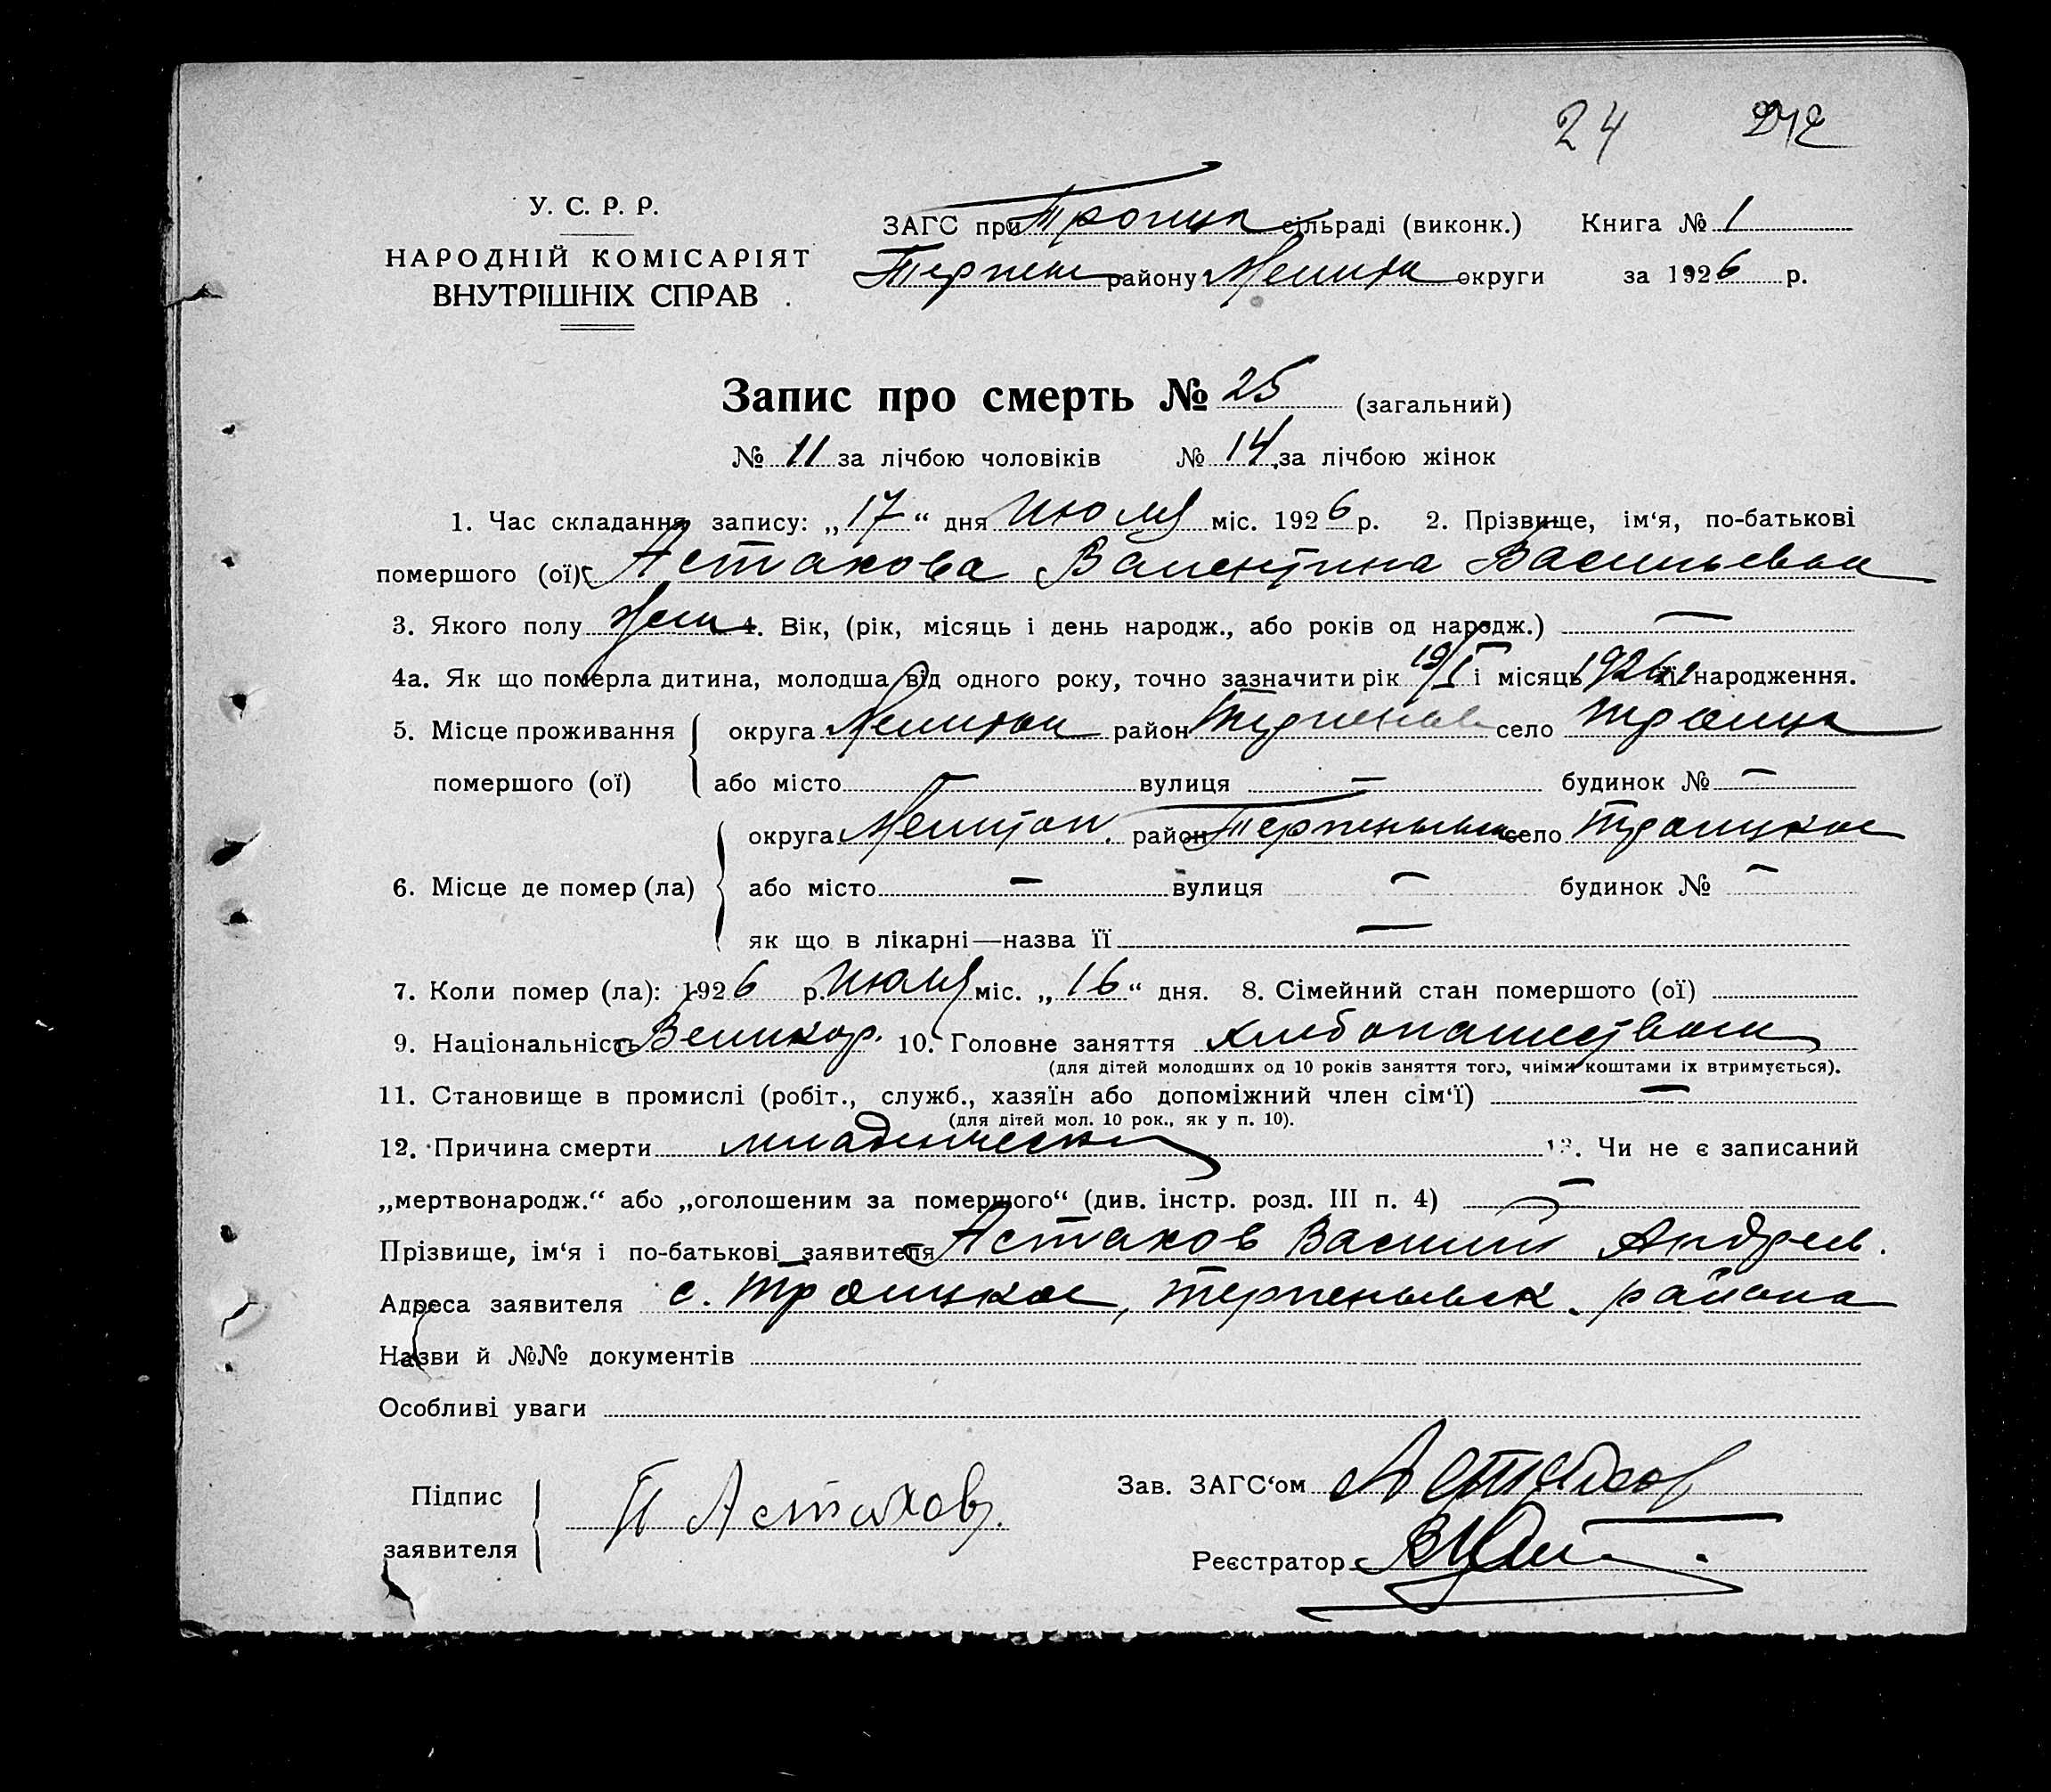 24
У. С. Р. Р.
НАРОДНІЙ КОМІСАРІЯТ
ВНУТРІШНІХ СПРАВ
ЗАГС при Троицк сільраді (виконк.) Книга № 1
Терпен району Мелит округи за 1926 р.
Запис про смерть № 25 (загальний)
№ 11 за лічбою чоловіків № 14 за лічбою жінок
1. Час складання запису: „17“ дня Июля міс. 1926 р. 2. Прізвище, ім‘я, по-батькові
помершого (ої) Астахова Валентина Васильевна
3. Якого полу жен 4. Вік, (рік, місяць і день народж., або років од народж.) —
4а. Як що померла дитина, молодша від одного року, точно зазначити рік 19/I і місяць 1926 її народження.
5. Місце проживання округа Мелитоп район Терпеньев село Троицк
помершого (ої) або місто — вулиця — будинок № —
округа Мелитоп. район Терпеньевск село Троицкое
6. Місце де помер (ла) або місто — вулиця — будинок № —
як що в лікарні—назва її —
7. Коли помер (ла): 1926 р. Июля міс. „16“ дня. 8. Сімейний стан помершого (ої)
9. Національність Великор. 10. Головне заняття хлебопашеством
(для дітей молодших од 10 років заняття того, чиїми коштами їх втримується).
11. Становище в промислі (робіт., служб., хазяїн або допоміжний член сім‘ї) —
(для дітей мол. 10 рок., як у п. 10).
12. Причина смерти младенческая 13. Чи не є записаний
„мертвонародж.“ або „оголошеним за помершого“ (див. інстр. розд. III п. 4) —
Прізвище, ім‘я і по-батькові заявителя Астахов Василий Андреев.
Адреса заявителя с. Троицкое, Терпеньевск. района
Назви й №№ документів
Особливі уваги
Підпис
заявителя
Астахов
Зав. ЗАГС‘ом
Реєстратор